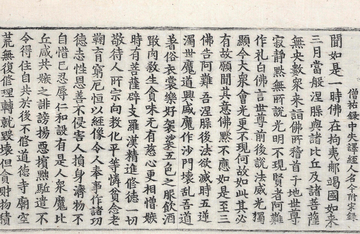 僧祐錄中失譯經人名附宋錄
聞如是一時佛在拘夷那竭國如來
三月當般涅槃與諸比丘及諸菩薩
無央數衆來詣佛所稽首于地世尊
寂靜黙無所說光明不現賢者阿難
作礼白佛言世尊前後說法威光獨
顯今大衆會光更不現何故如此其必
有故願聞其意佛黙不應如是至三
佛告阿難吾涅槃後法欲滅時五逆
濁世魔道興盛魔作沙門壞亂吾道
著俗衣裳樂好袈裟五色之服飲酒
噉肉煞生貪味無有慈心更相憎嫉
時有菩薩辟支羅漢精進修德一切
敬待人所宗向教化平等憐貧念老
鞠育窮厄恒以經像令人奉事作諸功
德志性恩善不侵害人捐身濟物不
自惜己忍辱仁和設有是人衆魔比
丘咸共嫉之誹謗揚惡擯黜駈遣不
令得住自共於後不修道德寺廟空
荒無復修理轉就毀壞但貪財物積